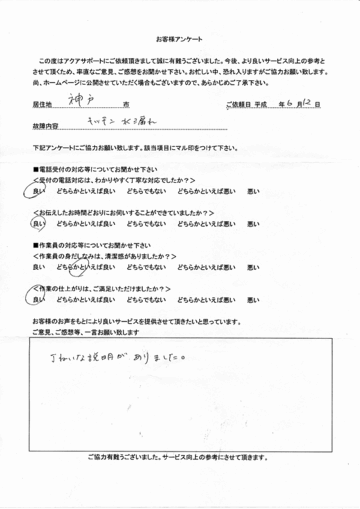 お客様アンケート
この度はアクアサポートにご依頼頂きまして誠に有難うございました。今後、より良いサービス向上の参考と
させて頂くため、率直なご意見、ご感想をお聞かせ下さい。お忙しい中、恐れ入りますがご協力お願い致します。
尚、ホームページに公開させていただく場合もございますので、あらかじめご了承下さい。
居住地 神戸 市 ご依頼日 平成 年 6 月 12 日
故障内容 水漏れ
下記アンケートにご協力お願い致します。該当項目にマル印をつけて下さい。
■電話受付の対応等についてお聞かせ下さい
＜受付の電話対応は、わかりやすく丁寧な対応でしたか？＞
良い どちらかといえば良い どちらでもない どちらかといえば悪い 悪い
＜お伝えしたお時間どおりにお伺いすることができていましたか？＞
良い どちらかといえば良い どちらでもない どちらかといえば悪い 悪い
■作業員の対応等についてお聞かせ下さい
＜作業員の身だしなみは、清潔感がありましたか？＞
良い どちらかといえば良い どちらでもない どちらかといえば悪い 悪い
＜作業の仕上がりは、ご満足いただけましたか？＞
良い どちらかといえば良い どちらでもない どちらかといえば悪い 悪い
お客様のお声をもとにより良いサービスを提供させて頂きたいと思っています。
ご意見、ご感想等、一言お願い致します
丁ねいな説明がありました。
ご協力有難うございました。サービス向上の参考にさせて頂きます。